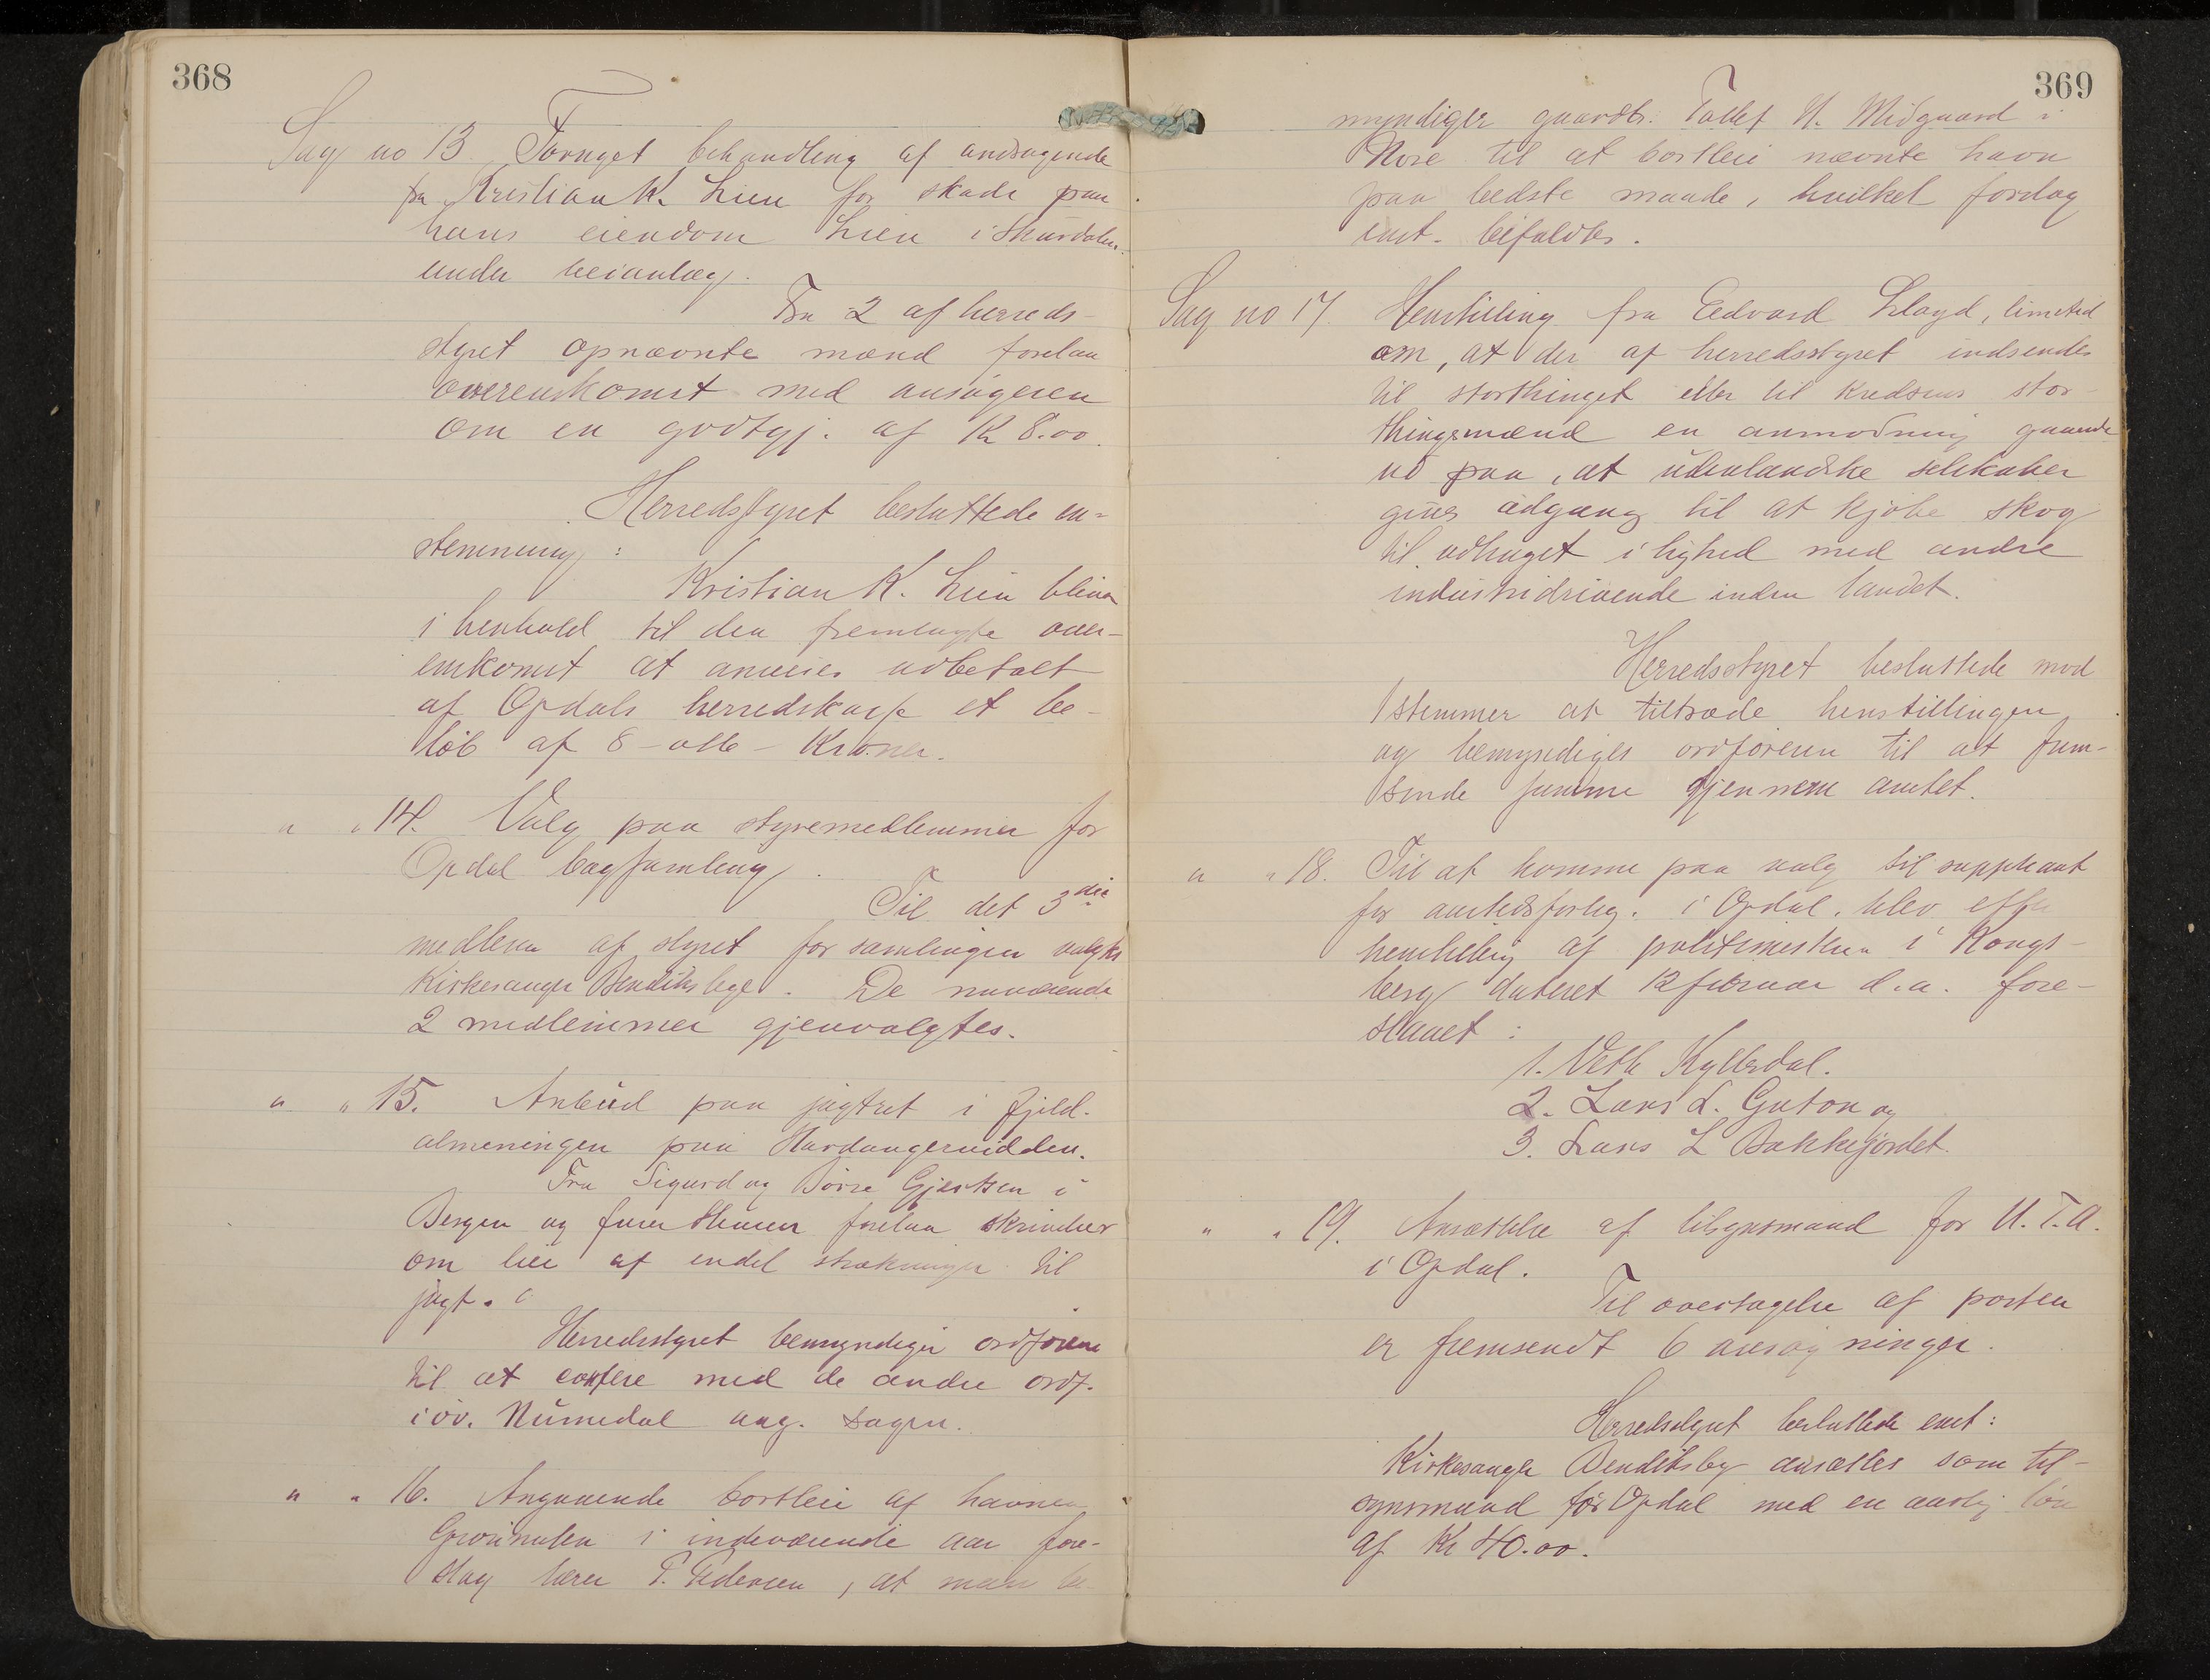 368
Sag no 13. Fornyet behandling af andragende
fra Kristian K. Lien for skade paa
hans eiendom Lien i Skurdalen
under veianlæg.
Fra 2 af herreds-
styret opnævnte mænd forelaa
overenskomst med ansøgeren
om en godtgj. af Kr 8.00.
Herredsstyret besluttede en-
stemmig:
Kristian K. Lien bliver
i henhold til den fremlagte over-
enskomst at anvises udbetalt
af Opdals herredskasse et be-
løb af 8 - otte - Kroner.
" " 14. Valg paa styremedlemmer for
Opdal bogsamling.
Til det 3die
medlem af styret for samlingen valgtes
Kirkesanger Bendiksby. De nuværende
2 medlemmer gjenvalgtes.
" " 15. Anbud paa jagtret i fjeld-
almeningen paa Hardangervidden.
Fra Sigurd og Børre Gjertsen i
Bergen og forelaa skrivelser
om leie af endel strækninger til
jagt.
Herredsstyret bemyndiger ordføreren
til at confere med de andre ordf.
i øv. Numedal ang. sagen.
" " 16. Angaaende bortleie af havnen
i indeværende aar fore-
slog lærer P. Pedersen, at man be-
369
myndiger gaardbr. Tollef H. Midgaard i
Nore til at bortleie nævnte havn
paa bedste maade, hvilket forslag
enst. bifaldtes.
Sag no 17. Henstilling fra Edvard Lloyd, limeted
om, at der af herredsstyret indsendes
til storthinget eller til kredsens stor-
thingsmænd en anmodning gaaende
ud paa, at udenlandske selskaber
gives adgang til at kjøbe skog
til udhuget i lighed med andre
industridrivende inden landet.
Herredsstyret besluttede mod
1 stemmer at tiltræde henstillingen
og bemyndiges ordføreren til at frem-
sende samme gjennem amtet.
" " 18. Til at komme paa valg til suppleant
for amtets forlig. i Opdal, blev efter
henstilling af politimesteren i Kongs-
berg dateret 12 februar d.a. fore-
slaaet:
1. Vetle Kyllesdal.
2. Lars L. Guton og
3. Lars L Bakkejordet.
" " 19. Ansættelse af tilsynsmand for U.T.A.
i Opdal.
Til overtagelse af posten
er fremsendt 6 ansøgninger.
Herredsstyret besluttede enst:
Kirkesanger Bendiksby ansættes som til-
synsmand for Opdal med en aarlig løn
af Kr 40.00.